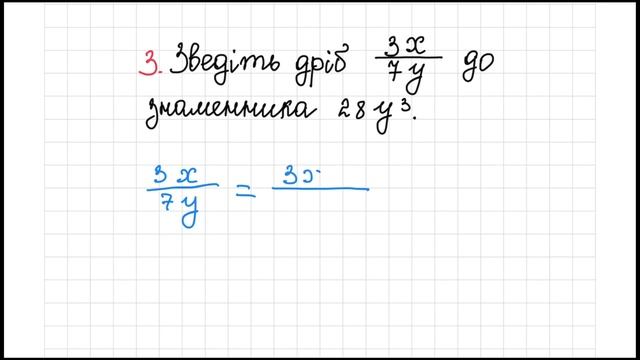 3. Зведіть дріб 3x/7y до
знаменника 28y³.
3x/7y = 3x